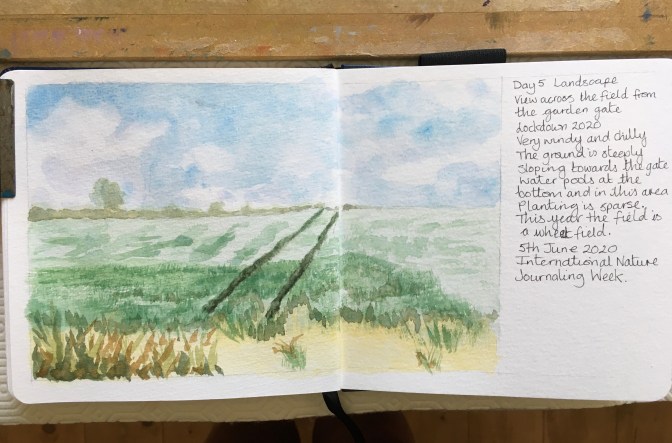 Day 5 Landscape
View across the field from
the garden gate
Lockdown 2020
Very windy and chilly
The ground is steeply
sloping towards the gate
water pools at the
bottom and in this area
Planting is sparse.
This year the field is
a wheat field.
5th June 2020
International Nature
Journaling Week.